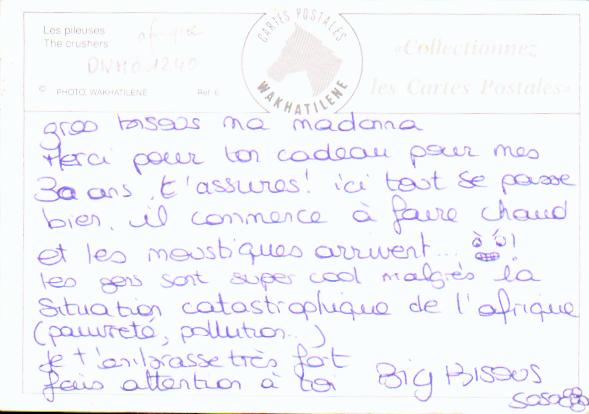 Les pileuses
The crushers
afrique
© PHOTO. WAKHATILENE Ref. 6
CARTES POSTALES
WAKHATILENE
«Collectionnez
les Cartes Postales»
gros bisous ma madonna
Merci pour ton cadeau pour mes
30 ans, t'assures! ici tout se passe
bien, il commence à faire chaud
et les moustiques arrivent...
les gens sont super cool malgrés la
situation catastrophique de l'afrique
(pauvreté, pollution..)
je t'embrasse très fort
fais attention à toi Big Bisous